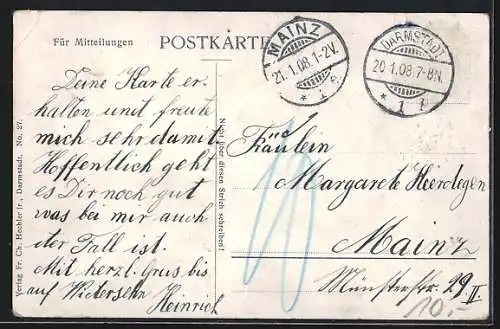 Für Mitteilungen
POSTKARTE
MAINZ
21.1.08.1-2V.
DARMSTADT
20.1.08.7-8N.
* 1 f
Deine Karte er-
halten und freute
mich sehr damit
Hoffentlich geht
es Dir noch gut
was bei mir auch
der Fall ist.
Mit herzl. Grus bis
auf Wiedersehn
Heinrich
Verlag Fr. Ch. Hechler jr., Darmstadt. No. 27.
Nicht über diesen Strich schreiben!
Fräulein
Margarete Heerdegen
Mainz
Münsterstr. 29 II.
10.-